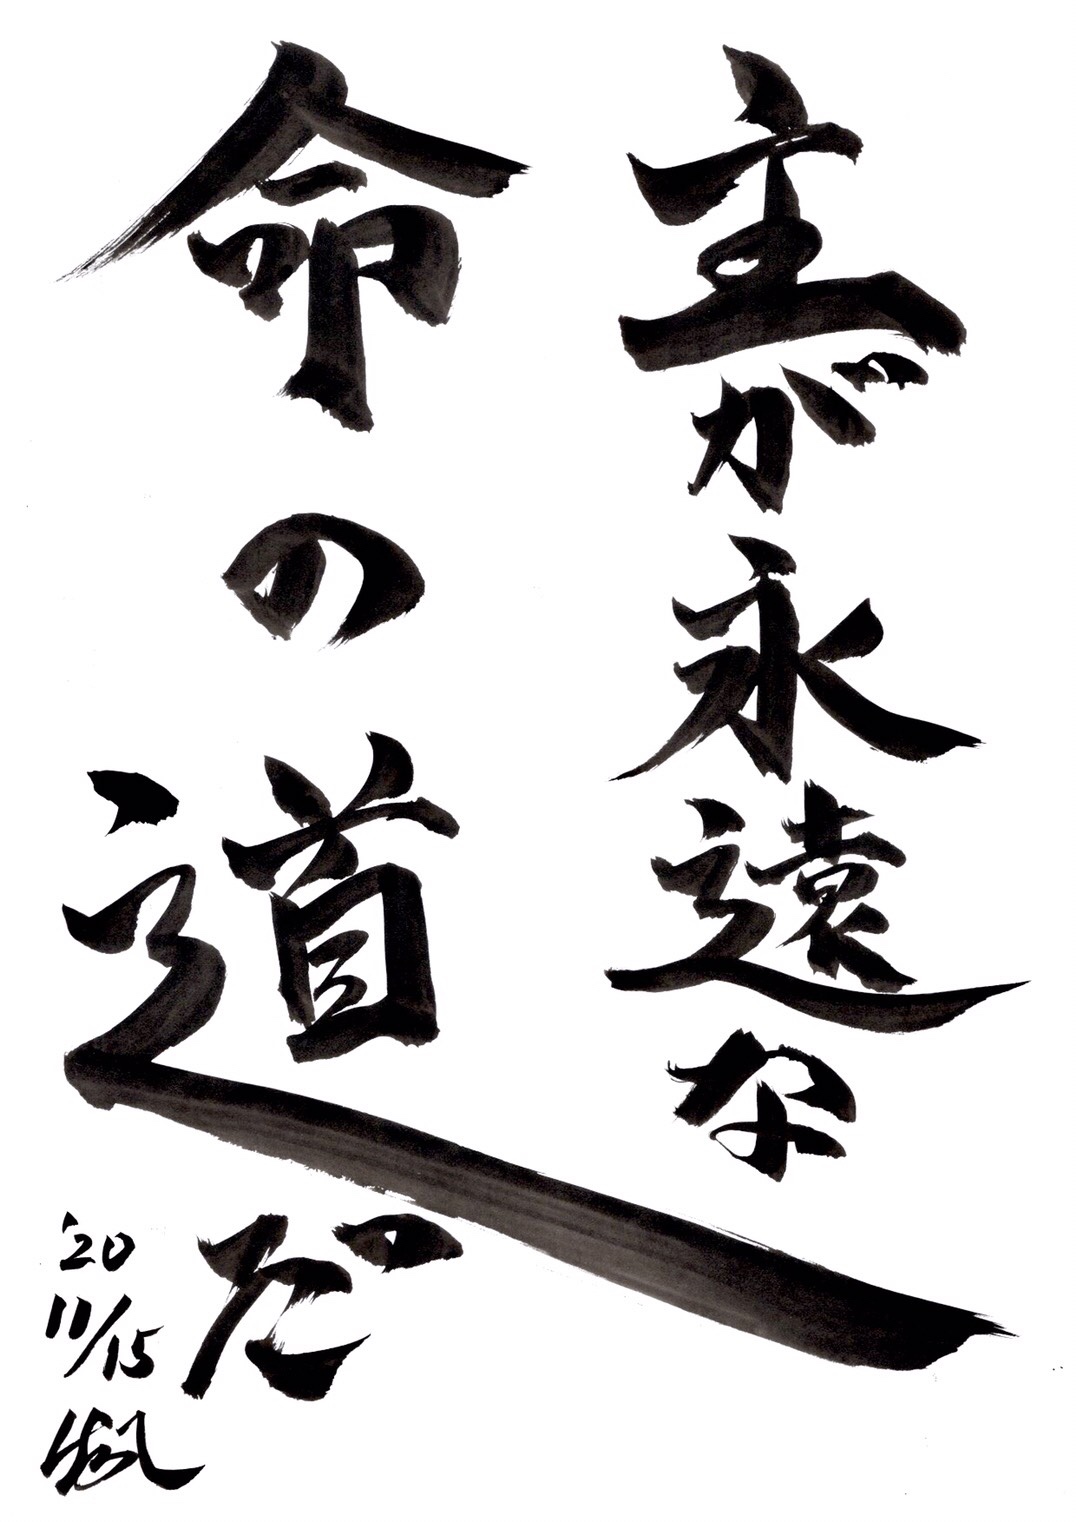 主が永遠な
命の道だ
'20
11/15